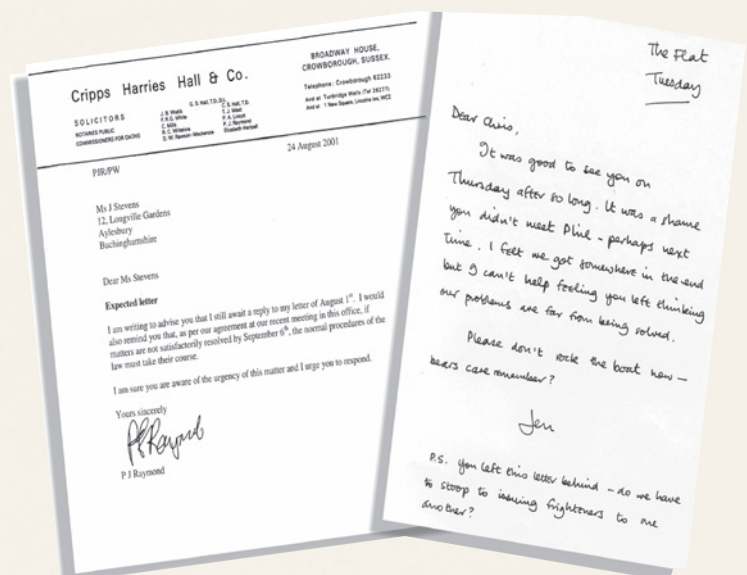 Cripps Harries Hall & Co.
SOLICITORS
NOTARIES PUBLIC
COMMISSIONERS FOR OATHS
BROADWAY HOUSE,
CROWBOROUGH, SUSSEX.
Telephone: Crowborough 62233
And at Tunbridge Wells (Tel 26277)
And at 1 New Square, Lincolns Inn, WC2
24 August 2001
PJR/PW
Ms J Stevens
12, Longville Gardens
Aylesbury
Buchinghamshire
Dear Ms Stevens
Expected letter
I am writing to advise you that I still await a reply to my letter of August 1st. I would
also remind you that, as per our agreement at our recent meeting in this office, if
matters are not satisfactorily resolved by September 6th, the normal procedures of the
law must take their course.
I am sure you are aware of the urgency of this matter and I urge you to respond.
Yours sincerely
P J Raymond
The Flat
Tuesday
Dear Chris,
It was good to see you on
Thursday after so long. It was a shame
you didn't meet Phil - perhaps next
time. I felt we got somewhere in the end
but I can't help feeling you left thinking
our problems are far from being solved.
Please don't rock the boat now -
bears care remember?
Jen
P.S. You left this letter behind - do we have
to stoop to issuing frighteners to one
another?